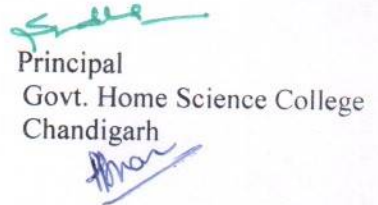 Principal
Govt. Home Science College
Chandigarh